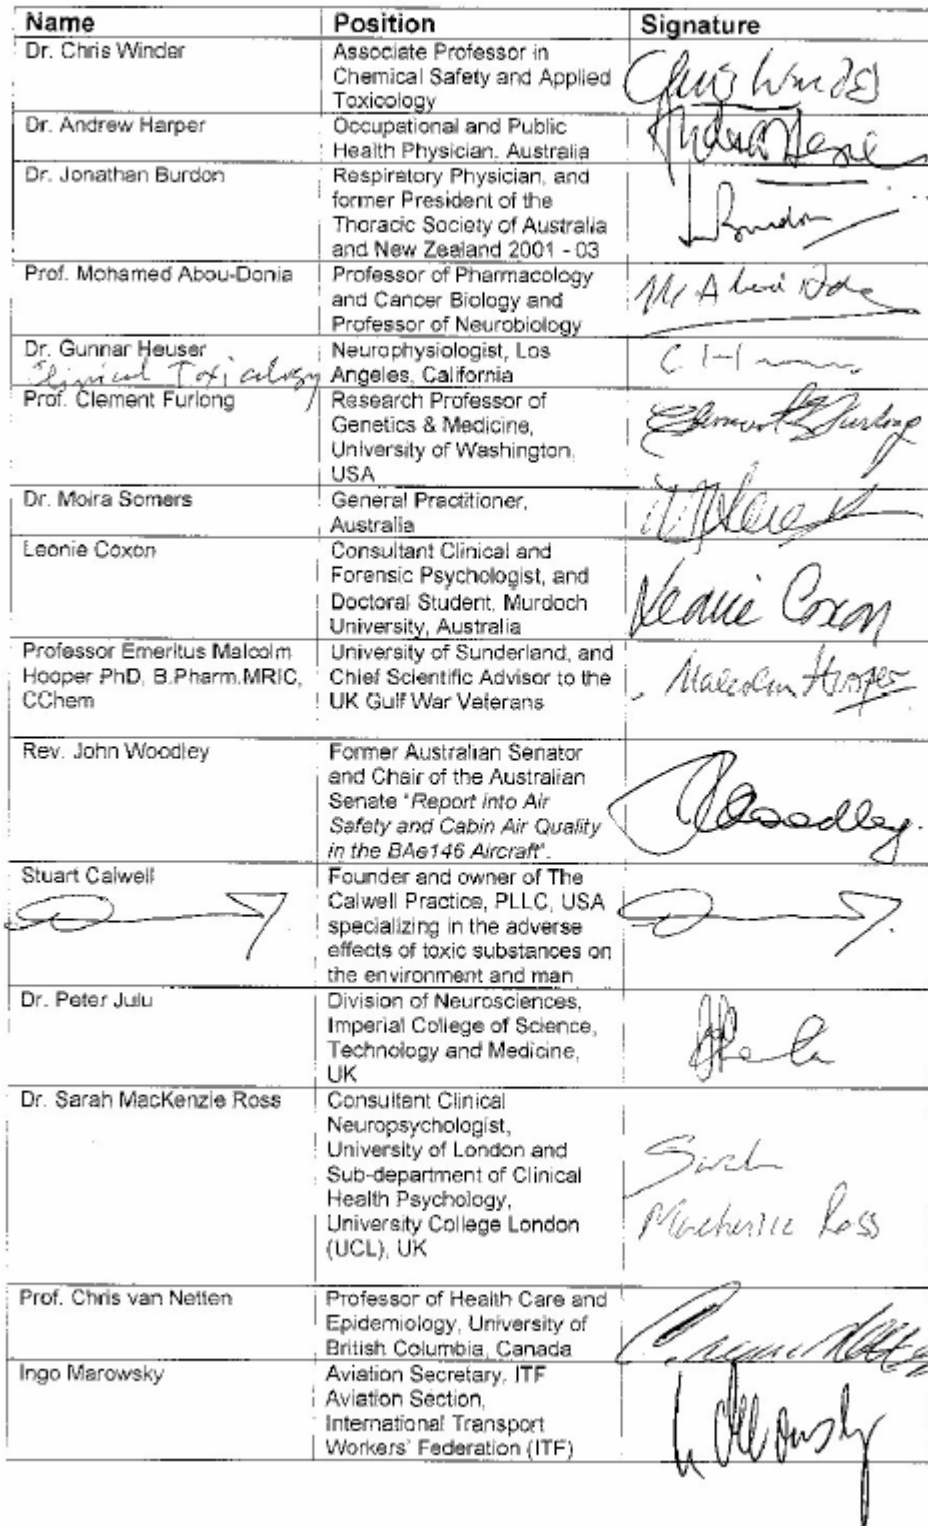 Name Position Signature
Dr. Chris Winder Associate Professor in
Chemical Safety and Applied
Toxicology
Chris Winder
Dr. Andrew Harper Occupational and Public
Health Physician, Australia
Dr. Jonathan Burdon Respiratory Physician, and
former President of the
Thoracic Society of Australia
and New Zealand 2001 - 03
J Burdon
Prof. Mohamed Abou-Donia Professor of Pharmacology
and Cancer Biology and
Professor of Neurobiology
Dr. Gunnar Heuser Neurophysiologist, Los
Clinical Toxicology Angeles, California
Prof. Clement Furlong Research Professor of
Genetics & Medicine,
University of Washington,
USA
Clement Furlong
Dr. Moira Somers General Practitioner,
Australia
Leonie Coxon Consultant Clinical and
Forensic Psychologist, and
Doctoral Student, Murdoch
University, Australia
Leonie Coxon
Professor Emeritus Malcolm University of Sunderland, and
Hooper PhD, B.Pharm.MRIC, Chief Scientific Advisor to the
CChem UK Gulf War Veterans
Malcolm Hooper
Rev. John Woodley Former Australian Senator
and Chair of the Australian
Senate "Report into Air
Safety and Cabin Air Quality
in the BAe146 Aircraft".
Woodley
Stuart Calwell Founder and owner of The
Calwell Practice, PLLC, USA
specializing in the adverse
effects of toxic substances on
the environment and man
Dr. Peter Julu Division of Neurosciences,
Imperial College of Science,
Technology and Medicine,
UK
Dr. Sarah MacKenzie Ross Consultant Clinical
Neuropsychologist,
University of London and
Sub-department of Clinical
Health Psychology,
University College London
(UCL), UK
Sarah
Mackenzie Ross
Prof. Chris van Netten Professor of Health Care and
Epidemiology, University of
British Columbia, Canada
Ingo Marowsky Aviation Secretary, ITF
Aviation Section,
International Transport
Workers' Federation (ITF)